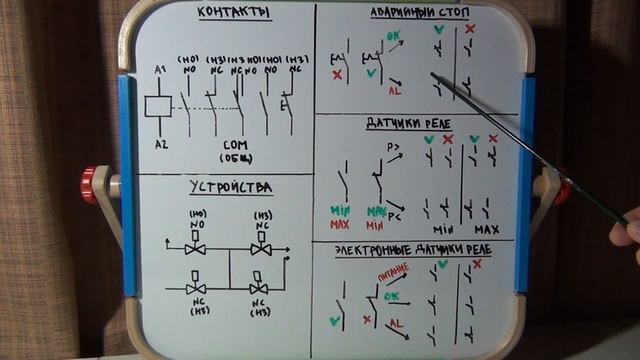 КОНТАКТЫ
(НО) (НЗ) (НЗ НО) (НО) (НЗ)
NO NC NC NO NO NC
A1
A2
COM
(ОБЩ)
УСТРОЙСТВА
(НО) (НЗ)
NO NC
NC NC
(НЗ) (НЗ)
АВАРИЙНЫЙ СТОП
OK
AL
ДАТЧИКИ РЕЛЕ
P>
P<
MIN MAX
MAX MIN
MIN MAX
ЭЛЕКТРОННЫЕ ДАТЧИКИ РЕЛЕ
ПИТАНИЕ
OK
AL